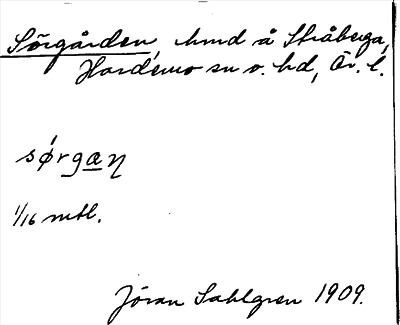 Sörgården, hmd å Stråberga,
Hardemo sn o. hd, Ör. l.
sǿrgan̥
1/16 mtl.
Jöran Sahlgren 1909.